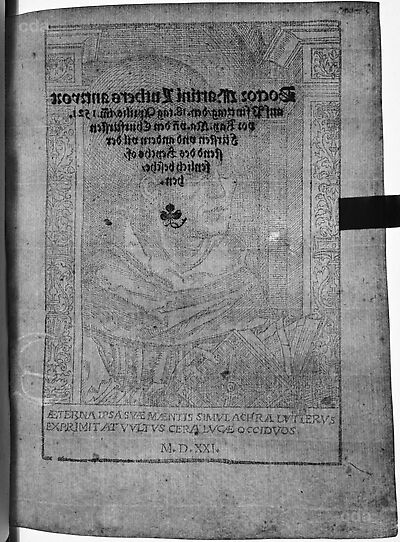 Doctor Martini Luthers antwort
auff Pfintztag den 18. tag Aprilis im̃ 1521.
vor Kay. Ma. vñ den Churfürsten
Fürsten vnd andern vil der
stend des Reichs of
fenlich besche
hen.
ÆTERNA IPSA SVÆ MENTIS SIMVLACHRA LVTHERVS
EXPRIMIT AT VVLTVS CERA LVCÆ OCCIDVOS
M. D. XXI.